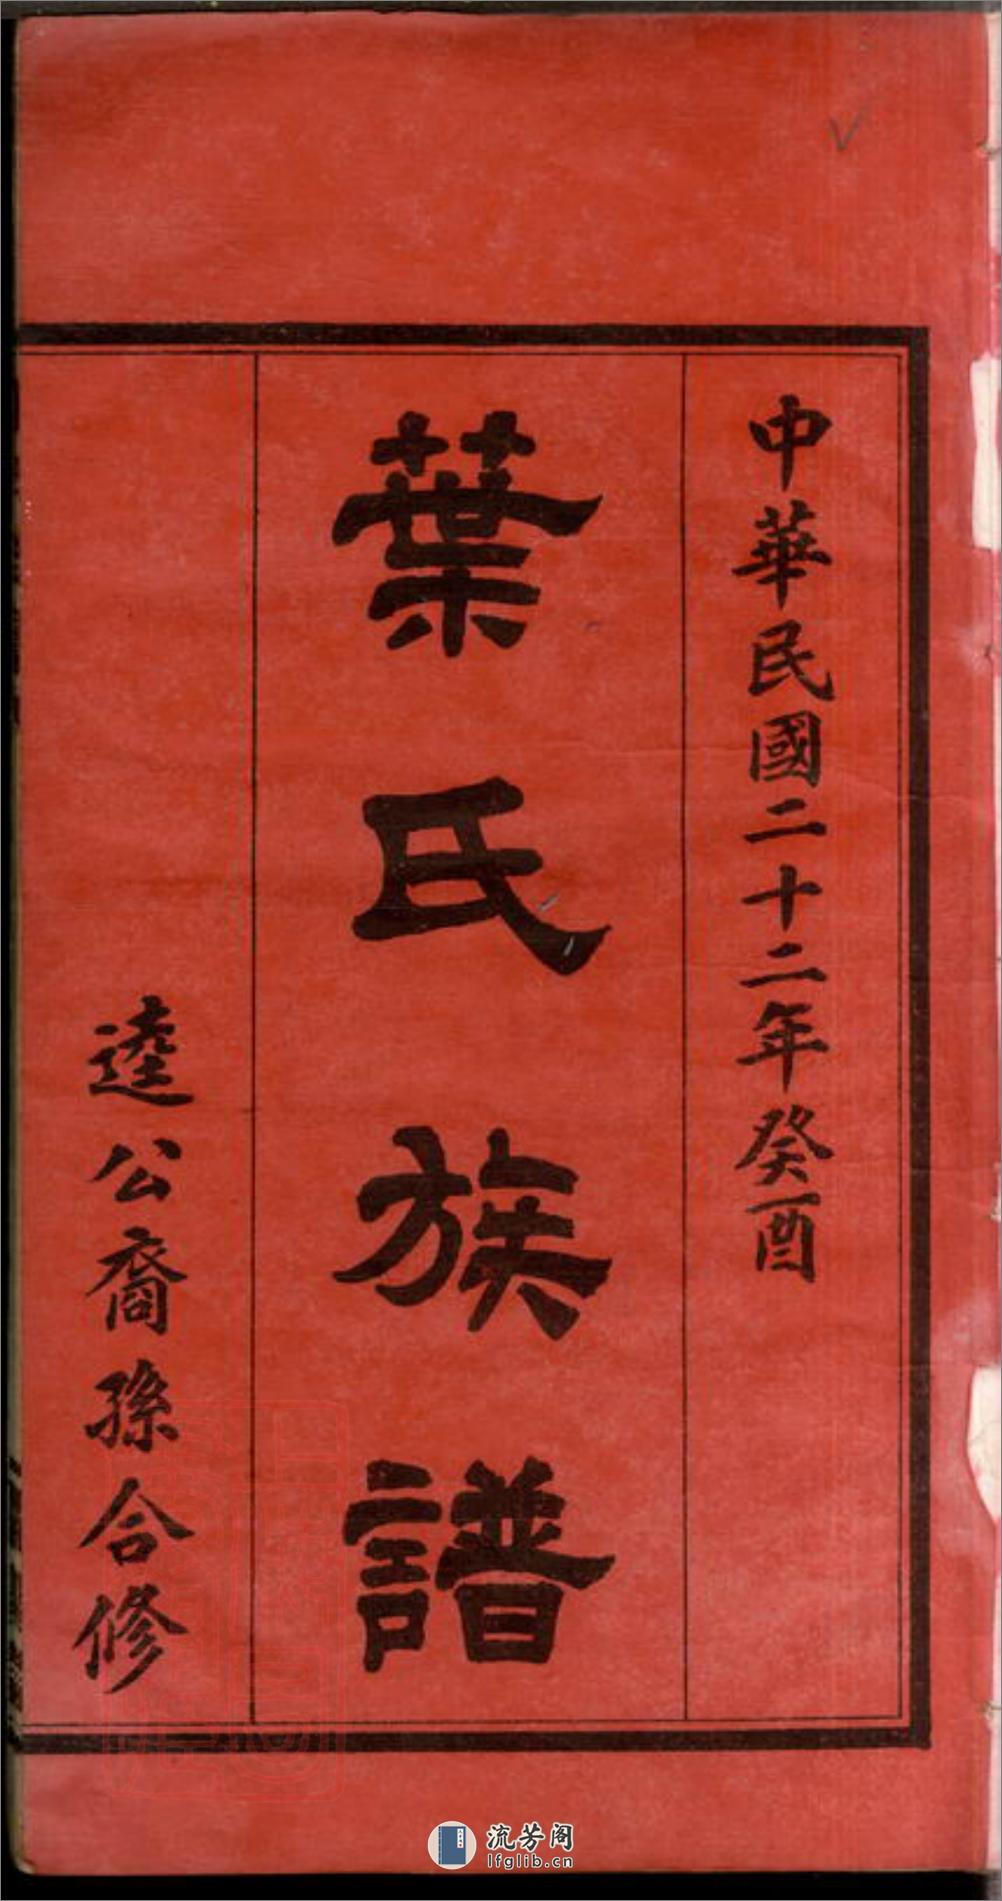 中華民國二十二年癸酉
葉氏族譜
逵公裔孫合修
流芳阁
lfglib.cn